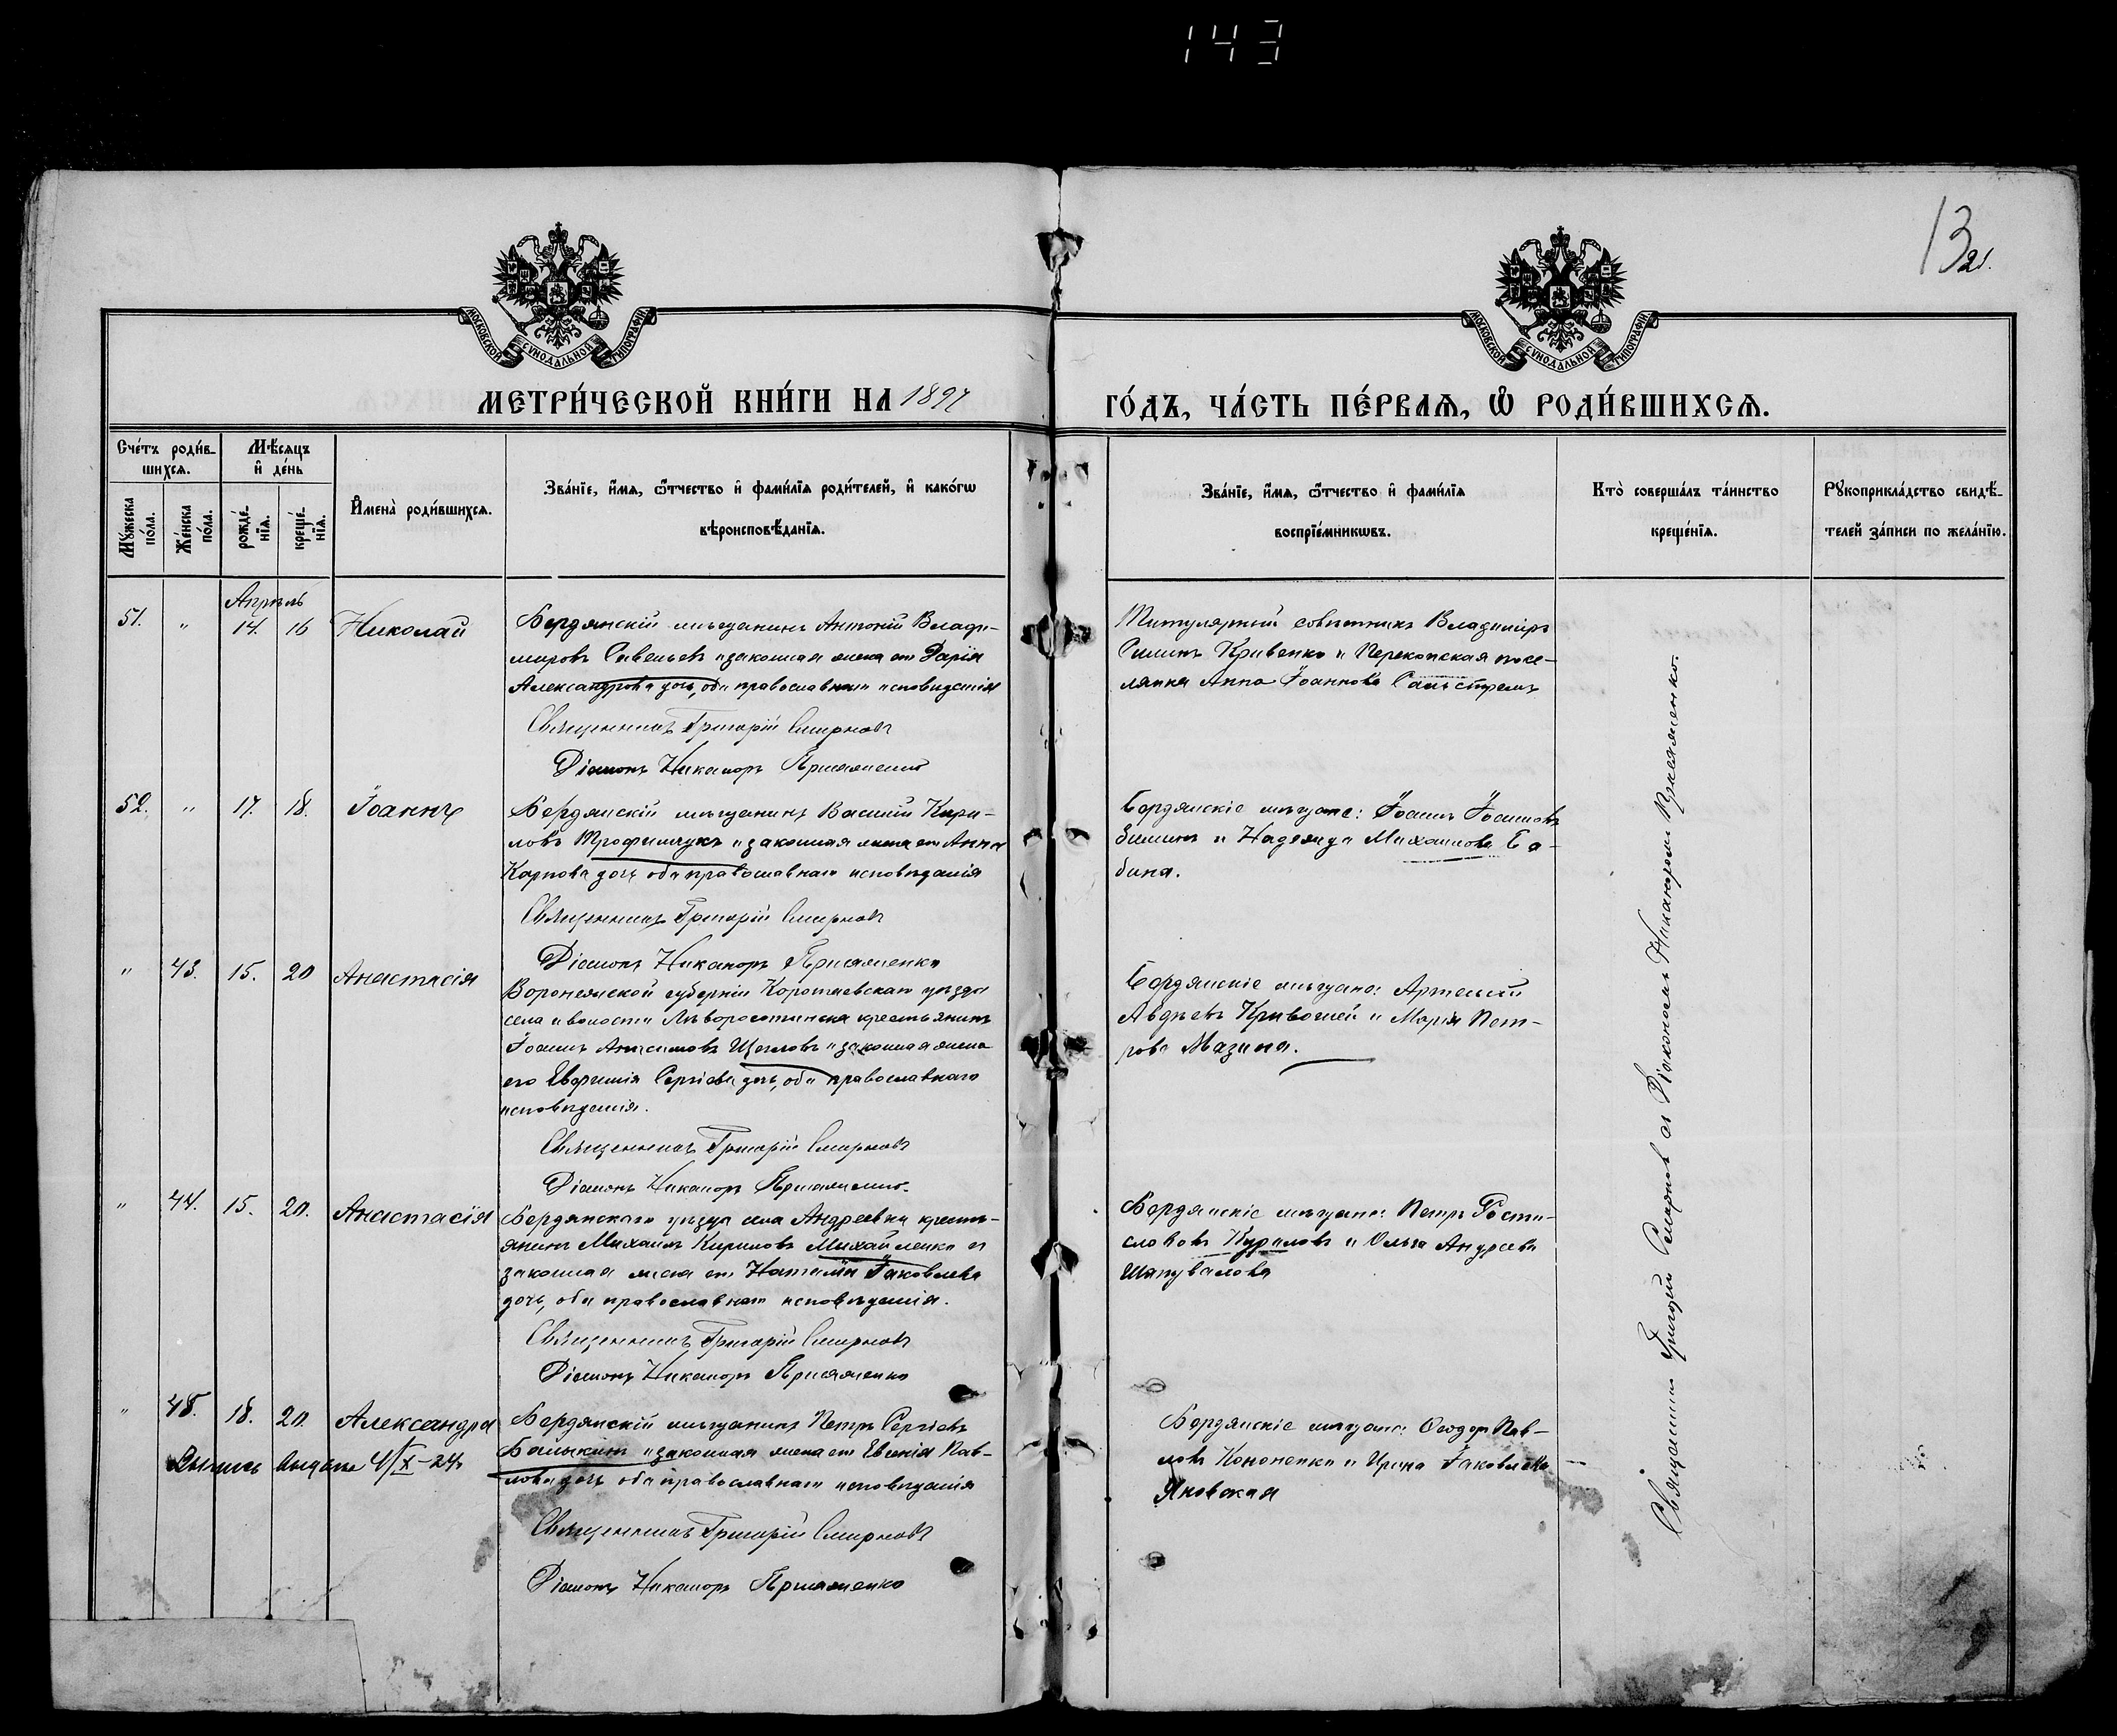 143
13
21.
МОСКОВСКОЙ СУНОДАЛЬНОЙ ТИПОГРАФІИ
МОСКОВСКОЙ СУНОДАЛЬНОЙ ТИПОГРАФІИ
МЕТРИ́ЧЕСКОЙ КНИ́ГИ НА 1897
ГО́ДЪ, ЧА́СТЬ ПЕ́РВАѦ, Ѡ҆ РОДИ́ВШИХСѦ.
Сче́тъ роди́в-
шихсѧ.
Мѣ́сѧцъ
и҆ де́нь
Мꙋ́жеска
по́ла.
Же́нска
по́ла.
рожде́-
нїѧ.
креще́-
нїѧ.
И҆мена̀ роди́вшихсѧ.
Зва́нїе, и҆́мѧ, ѻ҆́тчество и҆ фами́лїѧ роди́телей, и҆ како́гѡ
вѣроисповѣ́данїѧ.
Зва́нїе, и҆́мѧ, ѻ҆́тчество и҆ фами́лїѧ
воспрїе́мникѡвъ.
Кто̀ соверша́лъ та́инство
креще́нїѧ.
Рꙋкоприкла́дство свидѣ́-
телей за́писи по жела́нїю.
Апрѣль
51. " 14. 16 Николай
Бердянскій мѣщанинъ Антоній Влади-
міровъ Савельевъ и законная жена его Дарія
Александрова дочь, оба православнаго исповѣданія
Священникъ Григорій Смирновъ
Діаконъ Никаноръ Присяженко
Титулярный совѣтникъ Владиміръ
Кривенко и Перекопская посе-
лянка Анна Іоаннова
52. " 17. 18. Іоаннъ
Бердянскій мѣщанинъ Василій Кири-
ловъ Трофимчукъ и законная жена его Анна
Карпова дочь оба православнаго исповѣданія
Священникъ Григорій Смирновъ
Діаконъ Никаноръ Присяженко
Бердянскіе мѣщане: Іоаннъ Іоанновъ
и Надежда Михаилова Ба-
бина.
" 43. 15. 20 Анастасія
Воронежской губерніи Коротоякскаго уѣзда
села и волости крестьянинъ
Іоаннъ Анисимовъ Щегловъ и законная жена
его Евфимія Сергіева дочь, оба православнаго
исповѣданія.
Священникъ Григорій Смирновъ
Діаконъ Никаноръ Присяженко.
Бердянскіе мѣщане: Артемій
Авдѣевъ Кривошей и Марія Пет-
рова Мазина.
" 44. 15. 20. Анастасія
Бердянскаго уѣзда села Андреевки кресть-
янинъ Михаилъ Кириловъ Михайленко и
законная жена его Наталія Іаковлева
дочь, оба православнаго исповѣданія.
Священникъ Григорій Смирновъ
Діаконъ Никаноръ Присяженко
Бердянскіе мѣщане: Петръ Рости-
славовъ Куриловъ и Ольга Андреева
Шаповалова
" 45. 18. 20. Александра
Выпись выдана 4/X-24
Бердянскій мѣщанинъ Петръ Сергіевъ
и законная жена его Евгенія Пав-
лова дочь оба православнаго исповѣданія
Священникъ Григорій Смирновъ
Діаконъ Никаноръ Присяженко
Бердянскіе мѣщане: Ѳеодоръ Пав-
ловъ Кононенко и Ирина Іаковлева
Яновская
Священникъ Григорій Смирновъ съ Діакономъ Никаноромъ Присяженко.